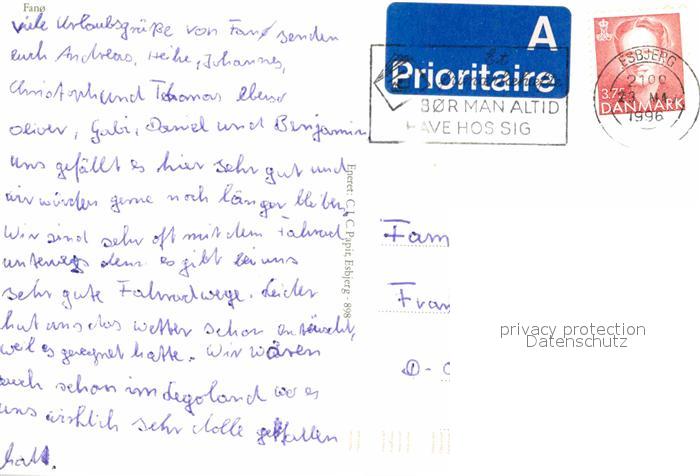 Fanø
viele Urlaubsgrüße von Fanø senden
euch Andreas, Heike, Johannes,
Christoph und Thomas ebenso
Oliver, Gabi, Daniel und Benjamin
Uns gefällt es hier sehr gut und
wir würden gerne noch länger bleiben.
Wir sind sehr oft mit dem Fahrrad
unterwegs denn es gibt bei uns
sehr gute Fahrradwege. Leider
hat uns das Wetter schon enttäuscht,
weil es geregnet hatte. Wir waren
auch schon im Legoland wo es
uns wirklich sehr dolle gefallen
hatt.
Eneret: C. J. C. Papir, Esbjerg - 898
A
Prioritaire
BØR MAN ALTID
HAVE HOS SIG
ESBJERG
1996
3.75
DANMARK
Fam
Fran
D-
privacy protection
Datenschutz